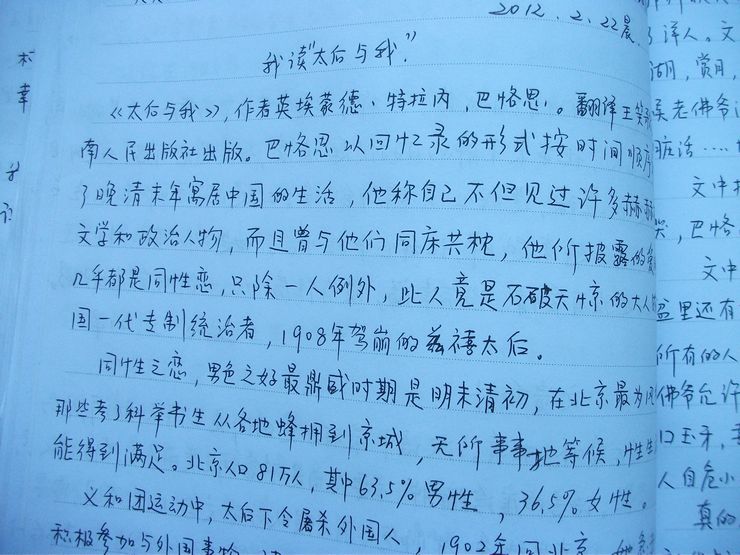 2012.2.22晨.
我读“太后与我.”
《太后与我》, 作者英埃蒙德、特拉内, 巴恪思、。翻译王笑歌
南人民出版社出版。巴恪思以回忆录的形式按时间顺序
了晚清末年寓居中国的生活, 他称自己不但见过许多赫赫
文学和政治人物, 而且曾与他们同床共枕, 他所披露的
几乎都是同性恋, 只除一人例外, 此人竟是石破天惊的大人
国一代专制统治者, 1908年驾崩的兹禧太后。
同性之恋, 男色之好最鼎盛时期是明末清初, 在北京最为
那些考了科学书生从各地蜂拥到京城, 无所事事地等候, 性生
能得到满足。北京人口81万人, 其中63.5%男性, 36.5%女性。
义和团运动中, 太后下令屠杀外国人, 1902年回北京
积极参加与外国事物
本
幸
洋人。文
湖, 赏月,
老佛爷
脏话……
文中
, 巴恪
文中
盆里还有
所有的人
佛爷允许
口玉牙,
人自危小
真的